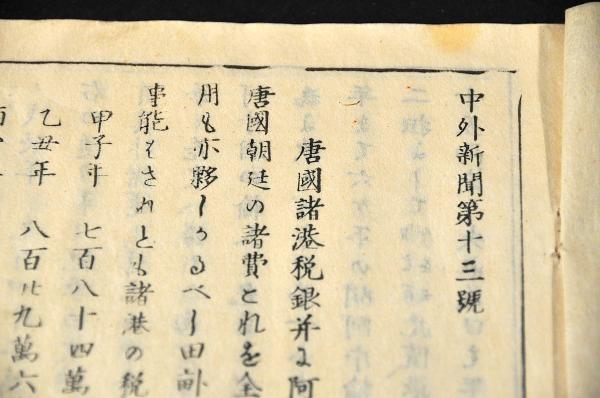 中外新聞第十三號
唐國諸港税銀并に阿
唐國朝廷の諸費とれを全
用も亦夥しかるべし田
事能はされとも諸港の税
甲子年 七百八十四萬
乙丑年 八百廿九萬六